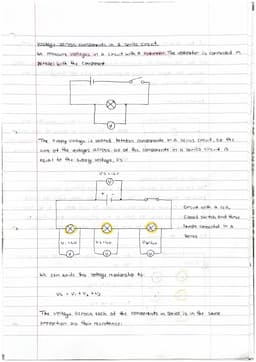 Voltage across components in a series circuit.
We measure voltages in a circuit with a voltmeter. The voltmeter is connected in
parallel with the component
V
The supply voltage is shared between components in a series circuit, so the
sum of the voltages across all of the components in a series circuit is
equal to the supply voltage, Vs.
V
V
V
V
Circuit with a cell,
closed switch and three
lamps connected in a
series
We can write this voltage relationship as:
Vs = V1 + V2 + V3
The voltage across each of the components in series is in the same
proportion as their resistance.